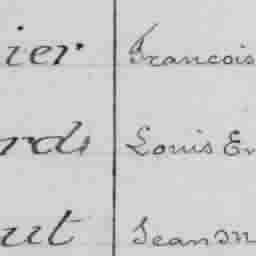 ier Francois
rds Louis Er
ut Jean